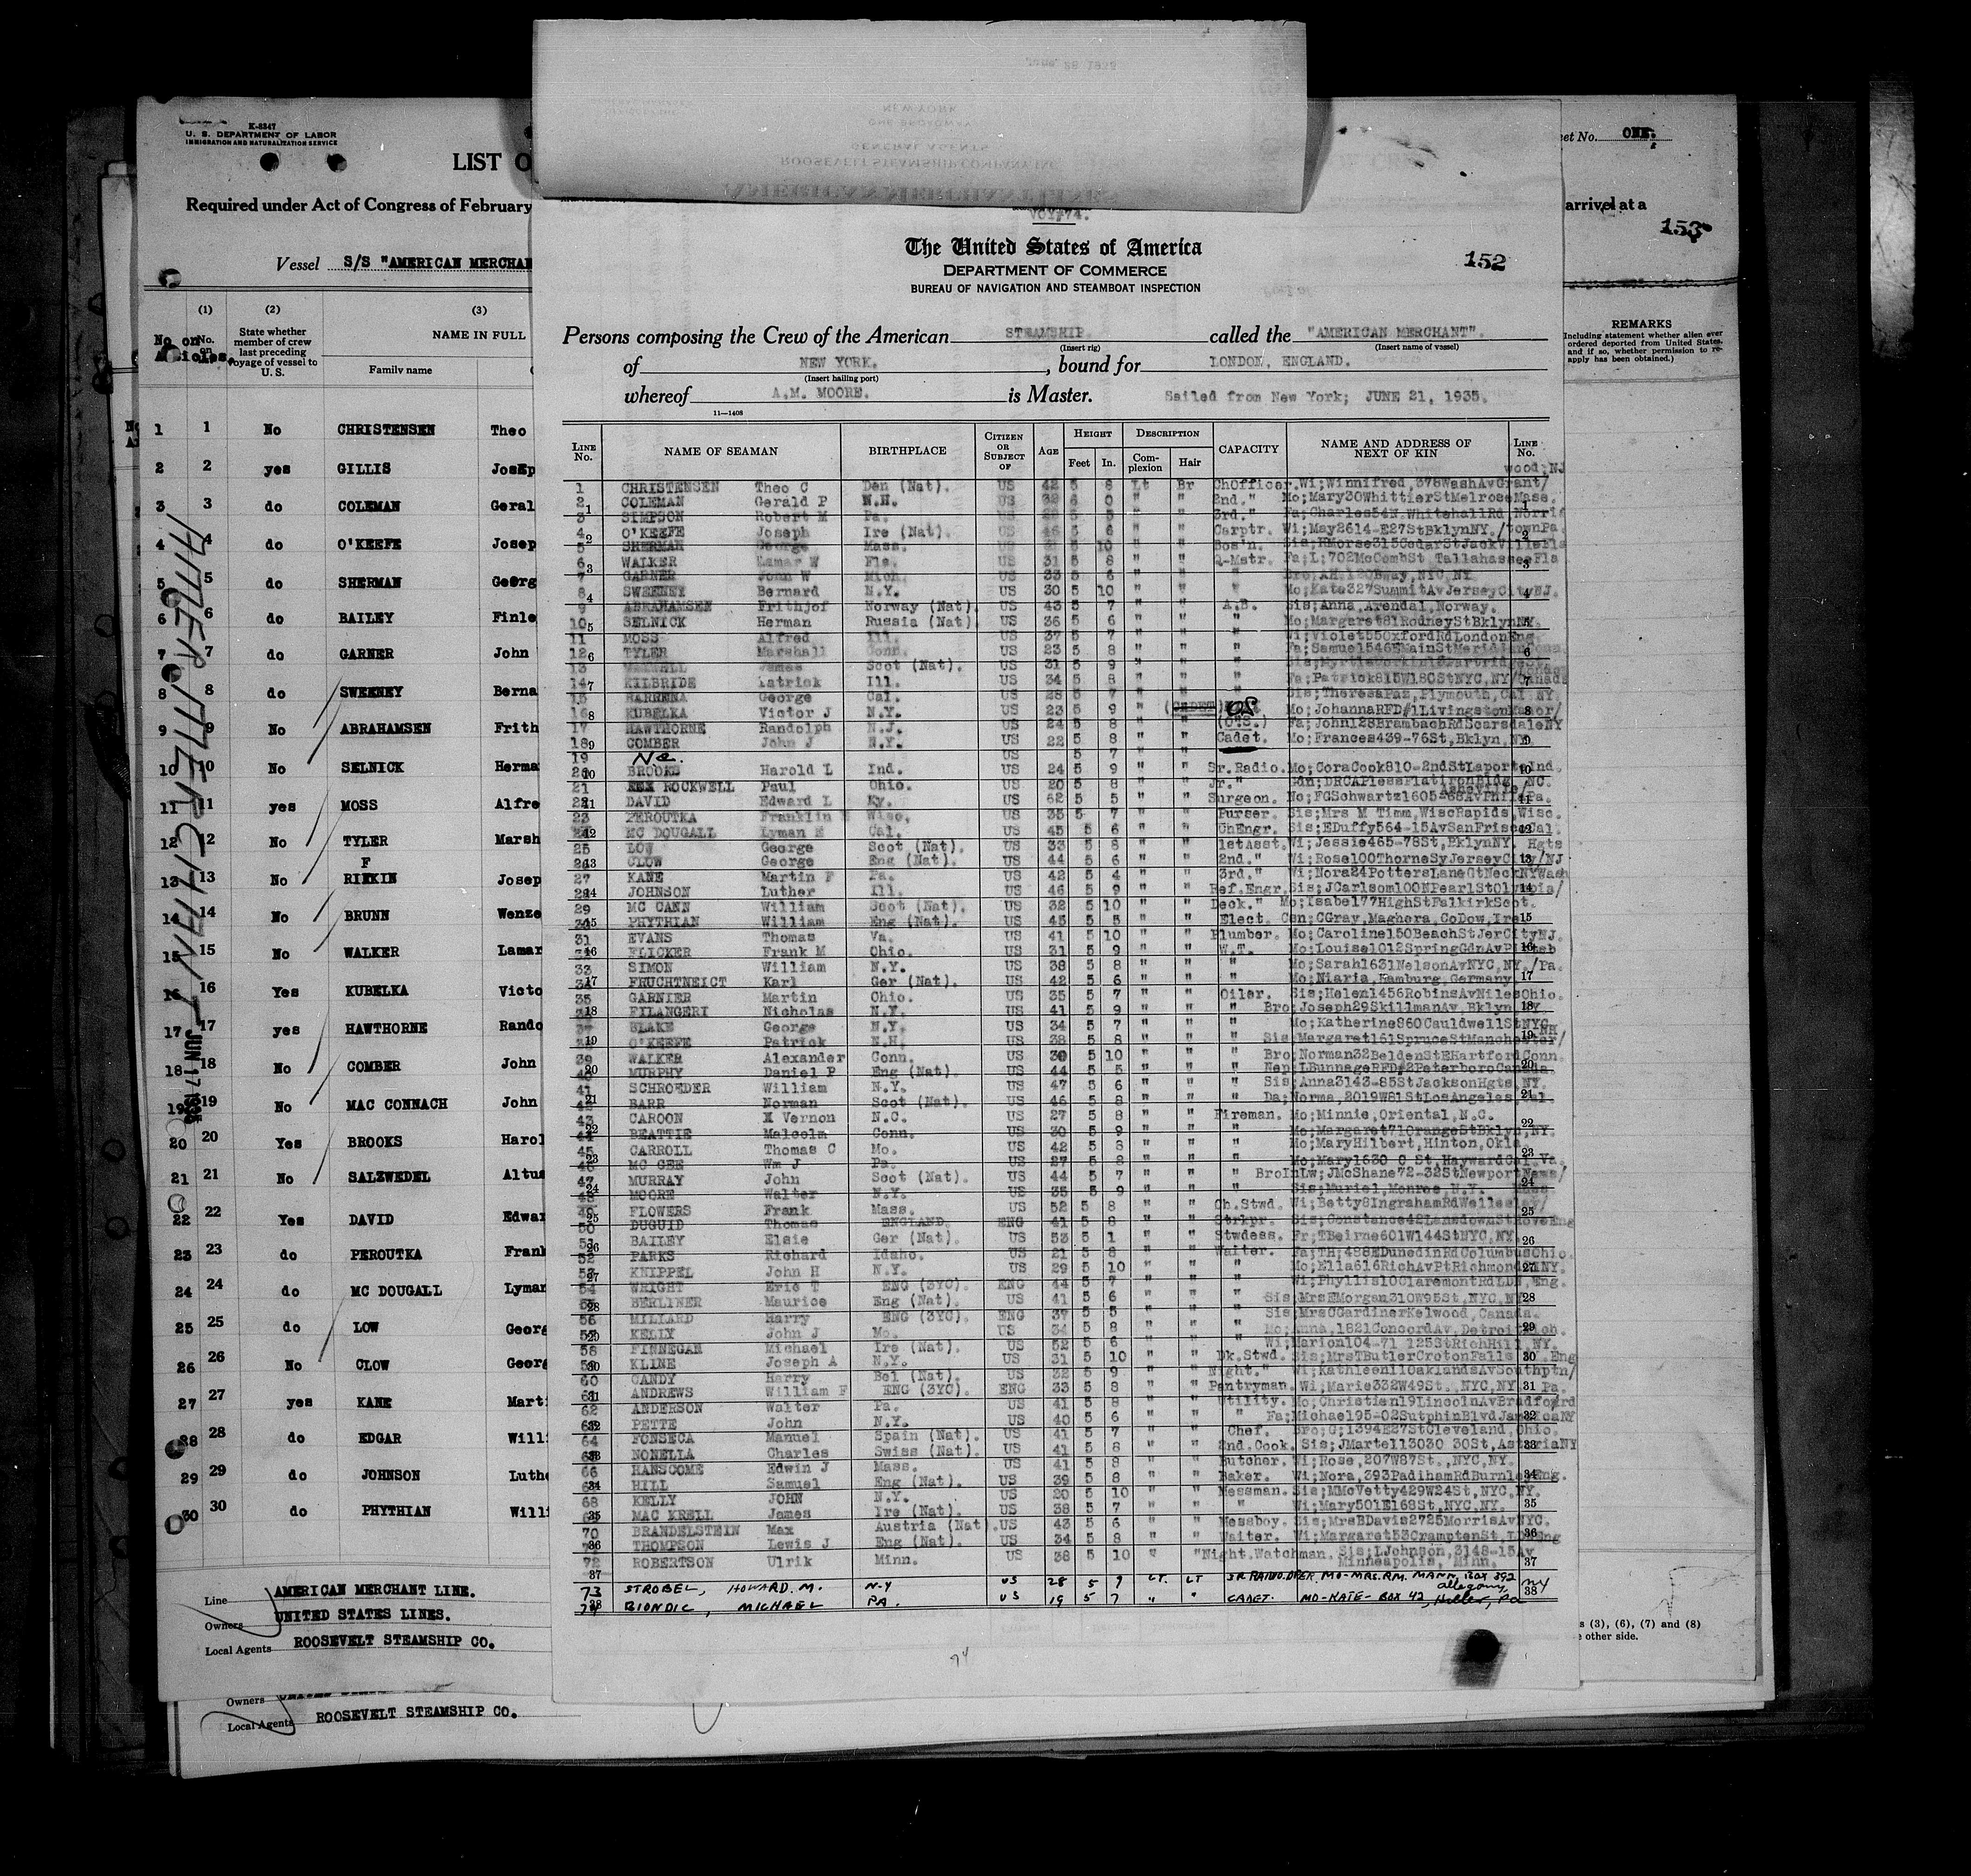 K-8847
U. S. DEPARTMENT OF LABOR
IMMIGRATION AND NATURALIZATION SERVICE
LIST O
Required under Act of Congress of February
Vessel S/S "AMERICAN MERCHAN
(1) (2) (3)
No. on Articles.
No. on
State whether member of crew last preceding voyage of vessel to U. S.
NAME IN FULL
Family name
1 1 No CHRISTENSEN Theo
2 2 yes GILLIS Josep
3 3 do COLEMAN Geral
4 4 do O'KEEFE Josep
5 5 do SHERMAN Georg
6 6 do BAILEY Finle
7 7 do GARNER John
8 8 do SWEENEY Berna
9 9 No ABRAHAMSEN Frith
10 10 No SELNICK Herma
11 11 yes MOSS Alfre
12 12 No TYLER Marsh
13 13 No RIFKIN Josep
14 14 No BRUNN Wenze
15 15 No WALKER Lamar
16 16 Yes KUBELKA Victo
17 17 yes HAWTHORNE Rando
18 18 No COMBER John
19 19 No MAC CONNACH John
20 20 Yes BROOKS Harol
21 21 No SALZWEDEL Altus
22 22 Yes DAVID Edwar
23 23 do PEROUTKA Frank
24 24 do MC DOUGALL Lyman
25 25 do LOW Georg
26 26 No CLOW Georg
27 27 yes KANE Marti
28 28 do EDGAR Willi
29 29 do JOHNSON Luthe
30 30 do PHYTHIAN Willi
AMERICAN MERCHANT JUN 17 1935
Line AMERICAN MERCHANT LINE.
Owners UNITED STATES LINES.
Local Agents ROOSEVELT STEAMSHIP CO.
Owners
Local Agents ROOSEVELT STEAMSHIP CO.
NEW YORK
ONE BROADWAY
GENERAL AGENTS
ROOSEVELT STEAMSHIP COMPANY INC
AMERICAN MERCHANT LINES
VOY#74.
The United States of America
DEPARTMENT OF COMMERCE
BUREAU OF NAVIGATION AND STEAMBOAT INSPECTION
152
Persons composing the Crew of the American STEAMSHIP. called the "AMERICAN MERCHANT".
(Insert rig) (Insert name of vessel)
of NEW YORK. , bound for LONDON, ENGLAND.
(Insert hailing port)
whereof A.M. MOORE. is Master. Sailed from New York; JUNE 21, 1935.
11—1408
LINE No. NAME OF SEAMAN BIRTHPLACE CITIZEN OR SUBJECT OF AGE HEIGHT Feet In. DESCRIPTION Complexion Hair CAPACITY NAME AND ADDRESS OF NEXT OF KIN LINE No.
wood,NJ
1 CHRISTENSEN Theo C Den (Nat). US 42 5 8 Lt Br ChOfficer. Wi;Winnifred,378WashAvGrant/
2 COLEMAN Gerald P N.H. US 6 0 " " 2nd." Mo;Mary30WhittierStMelroseMass.
3 SIMPSON Robert M Pa. US " " 3rd." Fa;Charles54N.WhitehallRd Norris
4 O'KEEFE Joseph Ire (Nat). US 46 5 6 " " Carptr. Wi;May2614-E27StBklynNY./townPa.
5 SHERMAN George Mass. US 10 " " Bos'n. Sis;HMorse315CedarStJackvilleFla
6 WALKER Lamar W Fla. US 31 5 8 " " Q-Mstr. Fa;L;702McCombSt TallahasseeFla
7 GARNER John W Mich. US 33 5 6 " " " Bro;AH.120Bway,NYC,NY
8 SWEENEY Bernard N.Y. US 30 5 10 " " " Mo;Kate327SummitAvJerseyCityNJ.
9 ABRAHAMSEN Frithjof Norway (Nat) US 43 5 7 " " A.B. Sis;Anna,Arendal,Norway.
10 SELNICK Herman Russia (Nat). US 36 5 6 " " " Mo;Margaret81RodneyStBklynNY.
11 MOSS Alfred Ill. US 37 5 7 " " " Wi;Violet55OxfordRdLondonEng
12 TYLER Marshall Conn. US 23 5 8 " " " Fa;Samuel546EMainStMeridian
13 James Scot (Nat). US 31 5 9 " " "
14 KILBRIDE Patrick Ill. US 34 5 8 " " " Fa;Patrick815W180StNYC,NY/Canada
15 BARRENA George Cal. US 28 5 7 " " " Sis;TheresaPaz,Plymouth,Cal NY.
16 KUBELKA Victor J N.Y. US 23 5 9 " (CADET) OS Mo;JohannaRFD#1LivingstonManor/
17 HAWTHORNE Randolph N.J. US 24 5 8 " " (O.S.) Fa;John128BrambachRdScarsdaleNY
18 COMBER John J N.Y. US 22 5 8 " " Cadet. Mo;Frances439-76St,Bklyn,NY
19 No. US 5 7 " "
20 BROOKS Harold L Ind. US 24 5 9 " " Sr.Radio. Mo;CoraCook810-2ndStLaporte,Ind.
21 ROCKWELL Paul Ohio. US 20 5 8 " " Jr." Gdn;DRCAPlessFlatironBldg, NC.
Asheville/
22 DAVID Edward L Ky. US 62 5 5 " " Surgeon. No;FGSchwartz1605-68AvPhilaPa.
23 PEROUTKA Franklin Wisc. US 35 5 7 " " Purser. Sis;Mrs M Timm,WiscRapids,Wisc.
24 MC DOUGALL Lyman E Cal. US 45 5 6 " " ChEngr. Sis;EDuffy564-15AvSanFrisco,Cal.
25 LOW George Scot (Nat). US 33 5 8 " " 1stAsst. Wi;Jessie465-78St,BklynNY. Hgts
26 CLOW George Eng (Nat). US 44 5 6 " " 2nd." Wi;Rose100ThorneSyJerseyCity/NJ
27 KANE Martin F Pa. US 42 5 4 " " 3rd." Wi;Nora24PottersLaneGtNeckNYWash
28 JOHNSON Luther Ill. US 46 5 9 " " Ref.Engr. Sis;JCarlsom100NPearlStOlympia/
29 MC CANN William Scot (Nat). US 32 5 10 " " Deck." Mo;Isabel77HighStFalkirkScot.
30 PHYTHIAN William Eng (Nat). US 45 5 5 " " Elect. Csn;CGray,Maghera,CoDow,Ire
31 EVANS Thomas Va. US 41 5 10 " " Plumber. Mo;Caroline150BeachStJerCityNJ.
32 FLICKER Frank M Ohio. US 31 5 9 " " W.T. Mo;Louise1012SpringGdnAvPittsb
33 SIMON William N.Y. US 38 5 8 " " " Mo;Sarah1631NelsonAvNYC,NY./Pa.
34 FRUCHTNEICT Karl Ger (Nat). US 42 5 6 " " " Mo;Niaria,Hamburg,Germany
35 GARNIER Martin Ohio. US 35 5 7 " " Oiler. Sis;Helen1456RobinsAvNilesOhio.
36 FILANGERI Nicholas N.Y. US 41 5 9 " " " Bro;Joseph29SkillmanAv,Bklyn NY
37 BLAKE George N.Y. US 34 5 7 " " " Mo;Katherine860CauldwellStNYC
38 O'KEEFE Patrick N.H. US 38 5 8 " " " Sis;Margaret161SpruceStManchester/NH
39 WALKER Alexander Conn. US 30 5 10 " " " Bro;Norman32BeldenStEHartfordConn.
40 MURPHY Daniel P Eng (Nat). US 44 5 5 " " " Nep;LBunnageRFD#2PeterboroCanada.
41 SCHROEDER William N.Y. US 47 5 6 " " " Sis;Anna3143-85StJacksonHgts,NY.
42 BARR Norman Scot (Nat). US 46 5 8 " " " Da;Norma,2019W81StLosAngeles,Cal.
43 CAROON X Vernon N.C. US 27 5 8 " " Fireman. Mo;Minnie,Oriental,N.C.
44 BEATTIE Malcolm Conn. US 30 5 9 " " " Mo;Margaret71OrangeStBklyn,NY.
45 CARROLL Thomas C Mo. US 42 5 8 " " " Mo;MaryHilbert,Hinton,Okla.
46 MC GEE Wm J Pa. US 27 5 8 " " " Mo;Mary1630 C St,HaywardCal.Va.
47 MURRAY John Scot (Nat). US 44 5 7 " " " BroInLw;JMcShane72-32StNewportNews/
48 MOORE Walter N.Y. US 35 5 9 " " " Sis;Muriel,Monroe,N.Y. Mass.
49 FLOWERS Frank Mass. US 52 5 8 " " Ch.Stwd. Wi;Betty8IngrahamRdWellesley/
50 DUGUID Thomas ENGLAND. ENG 41 5 8 " " Strkpr. Sis;Constance42LansdownStHoveEng
51 BAILEY Elsie Ger (Nat). US 53 5 1 " " Stwdess. Fr;TBeirne601W144StNYC,NY.
52 PARKS Richard Idaho. US 21 5 8 " " Waiter. Fa;TH;488EDunedinRdColumbusOhio.
53 KNIPPEL John H N.Y. US 29 5 10 " " " Mo;Ella616RichAvPtRichmondNY.
54 WRIGHT Eric T ENG (3YC). ENG 44 5 7 " " " Wi;Phyllis10ClaremontRdLDN,Eng.
55 BERLINER Maurice Eng (Nat). US 41 5 6 " " " Sis;MrsEMorgan310W95St,NYC,NY
56 MILLARD Harry ENG (3YC). ENG 37 5 5 " " " Sis;MrsCGardinerKelwood,Canada.
57 KELLY John J Mo. US 34 5 8 " " " Mo;Anna,1821ConcordAv,DetroitMich.
58 FINNEGAN Michael Ire (Nat). US 52 5 6 " " " Wi;Marion104-71 125StRichHill,NY.
59 KLINE Joseph A N.Y. US 31 5 10 " " Dk.Stwd. Sis;MrsTButlerCrotonFalls Eng
60 CANDY Harry Bel (Nat). US 32 5 9 " " Night." Wi;Kathleen11OaklandsAvSouthptn/
61 ANDREWS William F ENG (3YC). ENG 33 5 8 " " Pantryman. Wi;Marie332W49St.,NYC,NY Pa.
62 ANDERSON Walter Pa. US 41 5 8 " " Utility. Mo;Christien19LincolnAvBradford
63 PETTE John N.Y. US 40 5 6 " " " Fa;Michael95-02SutphinBlvdJamaicaNY
64 FONSECA Manuel Spain (Nat). US 41 5 7 " " Chef. Bro;G;1394E27StCleveland,Ohio.
65 NONELLA Charles Swiss (Nat). US 41 5 8 " " 2nd.Cook. Sis;JMartell3030 30St,AstoriaNY
66 HANSCOME Edwin J Mass. US 41 5 8 " " Butcher. Wi;Rose,207W87St.,NYC,NY.
67 HILL Samuel Eng (Nat). US 39 5 8 " " Baker. Wi;Nora,393PadihamRdBurnleyEng.
68 KELLY JOHN N.Y. US 20 5 10 " " Messman. Sis;MMcVetty429W24St,NYC,NY.
69 MAC KRELL James Ire (Nat). US 38 5 7 " " " Wi;Mary501E168St,NYC,NY.
70 BRANDELSTEIN Max Austria (Nat). US 43 5 6 " " Messboy. Sis;MrsBDavis2725MorrisAvNYC.
71 THOMPSON Lewis J Eng (Nat). US 34 5 8 " " Waiter. Wi;Margaret53CramptenSt,LDNEng
72 ROBERTSON Ulrik Minn. US 38 5 10 " " Night.Watchman. Sis;LJohnson,3148-15Av
Minneapolis, Minn.
73 STROBEL, HOWARD. M. N-Y US 28 5 9 LT. LT SR RADIO.OPER. MO-MRS.RM. MANN, BOX 392
Allegany, NY
74 BIONDIC, MICHAEL PA. US 19 5 7 " " CADET. MO-KATE-BOX 42, Hiller, Pa
74
et No. ONE.
arrival at a
153
REMARKS
Including statement whether alien ever ordered deported from United States, and if so, whether permission to reapply has been obtained.)
s (3), (6), (7) and (8)
e other side.